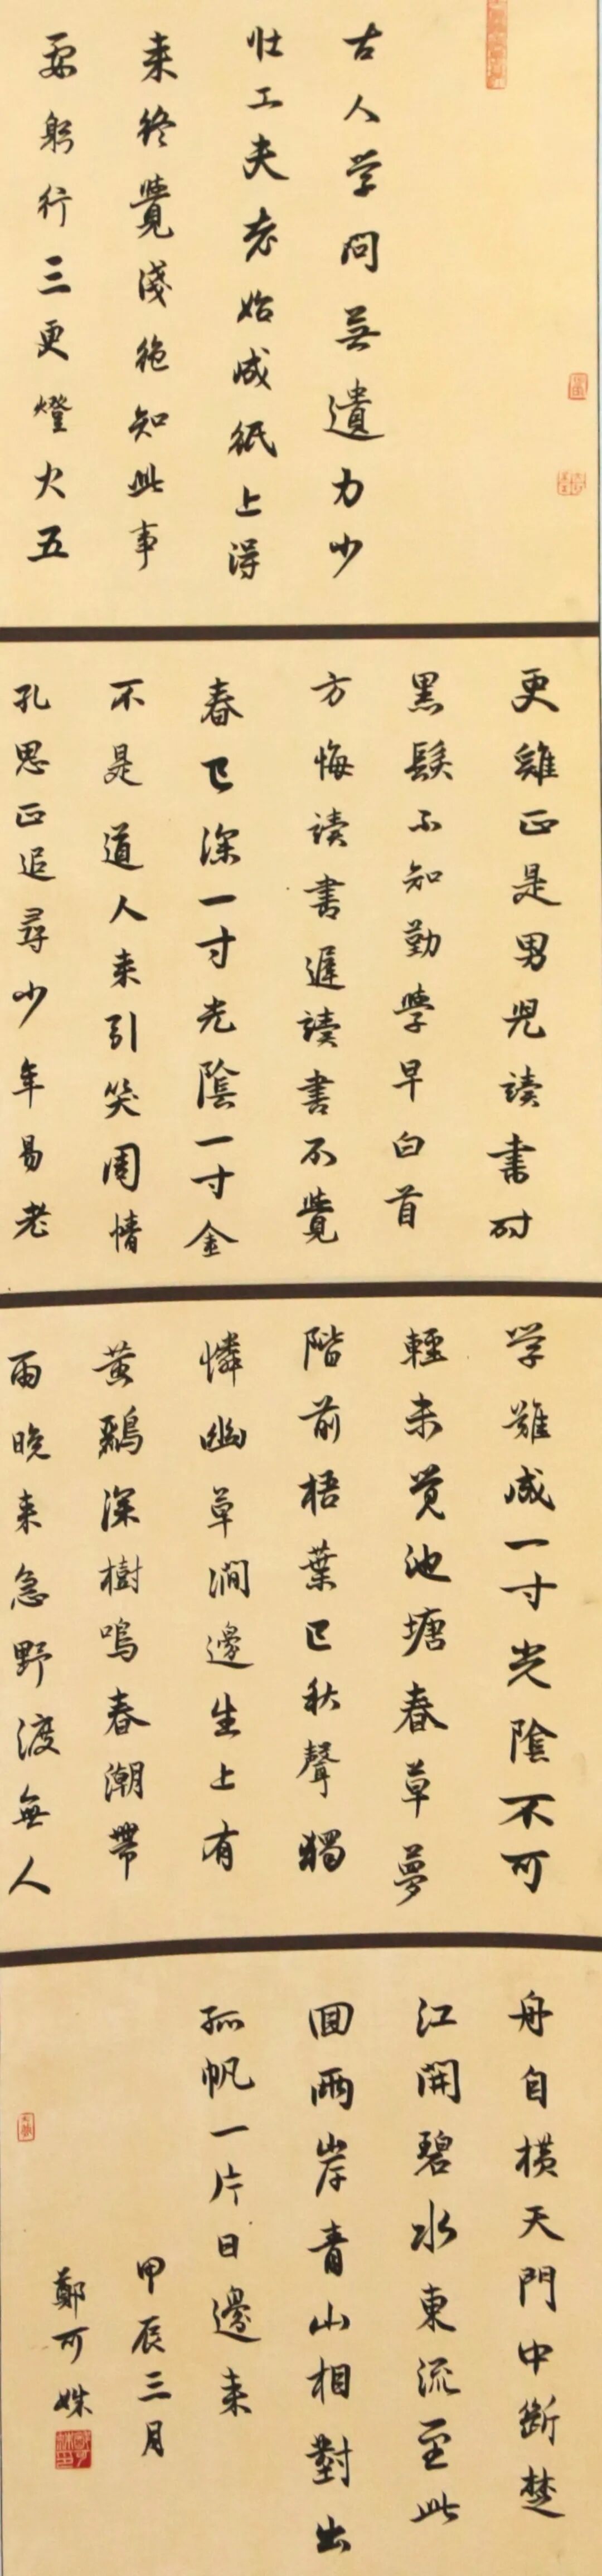 古人学問無遺力少
壮工夫老始成紙上得
来終覺淺絶知此事
要躬行三更燈火五
更雞正是男児讀書时
黒髮不知勤學早白首
方悔讀書遲讀書不覺
春已深一寸光陰一寸金
不是道人来引笑周情
孔思正追尋少年易老
学難成一寸光陰不可
輕未觉池塘春草夢
階前梧葉已秋聲獨
憐幽草澗邊生上有
黄鸝深樹鳴春潮帶
雨晚来急野渡無人
舟自横天門中斷楚
江開碧水東流至此
回兩岸青山相對出
孤帆一片日邊来
甲辰三月
鄭可姝